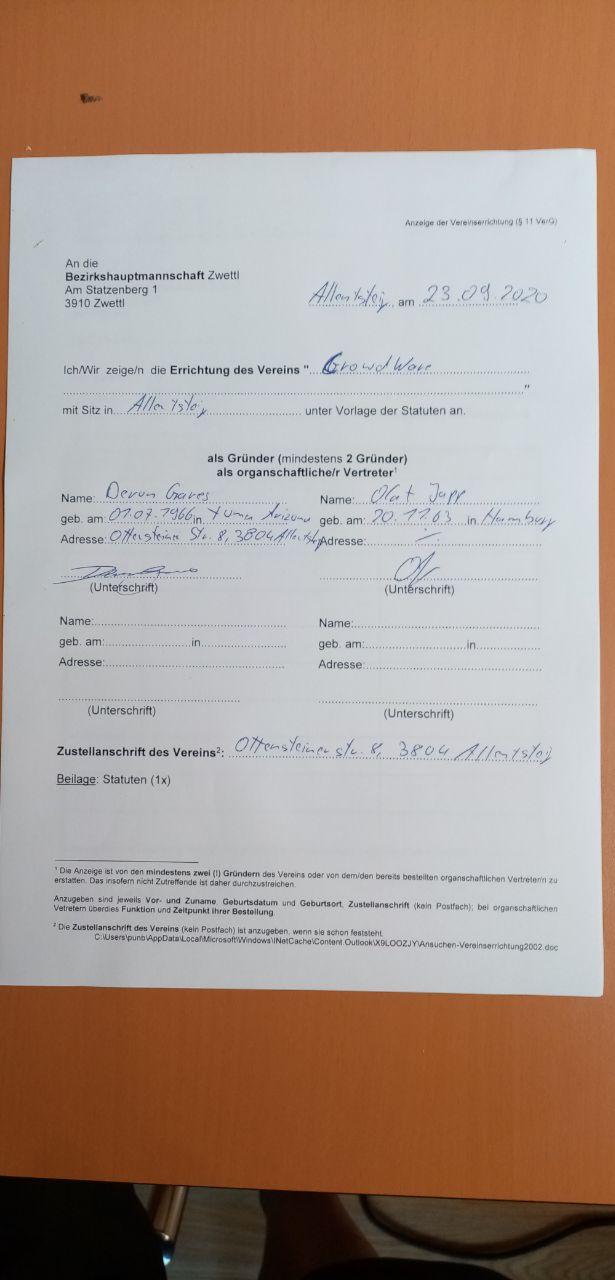 Anzeige der Vereinserrichtung (§ 11 VerG)
An die
Bezirkshauptmannschaft Zwettl
Am Statzenberg 1
3910 Zwettl
Allentsteig, am 23.09.2020
Ich/Wir zeige/n die Errichtung des Vereins "CrowdWare
"
mit Sitz in Allentsteig unter Vorlage der Statuten an.
als Gründer (mindestens 2 Gründer)
als organschaftliche/r Vertreter¹
Name: Name: Olaf Japp
geb. am 01.07.1966 in Yuma Arizona geb. am: 20.11.63 in Hamburg
Adresse: Ottensteiner Str. 8, 3804 Allentsteig Adresse:
(Unterschrift) (Unterschrift)
Name: Name:
geb. am: in geb. am: in
Adresse: Adresse:
(Unterschrift) (Unterschrift)
Zustellanschrift des Vereins²: Ottensteiner str. 8, 3804 Allentsteig
Beilage: Statuten (1x)
¹ Die Anzeige ist von den mindestens zwei (!) Gründern des Vereins oder von dem/den bereits bestellten organschaftlichen Vertreter/n zu
erstatten. Das insofern nicht Zutreffende ist daher durchzustreichen.
Anzugeben sind jeweils Vor- und Zuname, Geburtsdatum und Geburtsort, Zustellanschrift (kein Postfach); bei organschaftlichen
Vetretern überdies Funktion und Zeitpunkt ihrer Bestellung.
² Die Zustellanschrift des Vereins (kein Postfach) ist anzugeben, wenn sie schon feststeht.
C:\Users\punb\AppData\Local\Microsoft\Windows\INetCache\Content.Outlook\X9LOOZJY\Ansuchen-Vereinserrichtung2002.doc